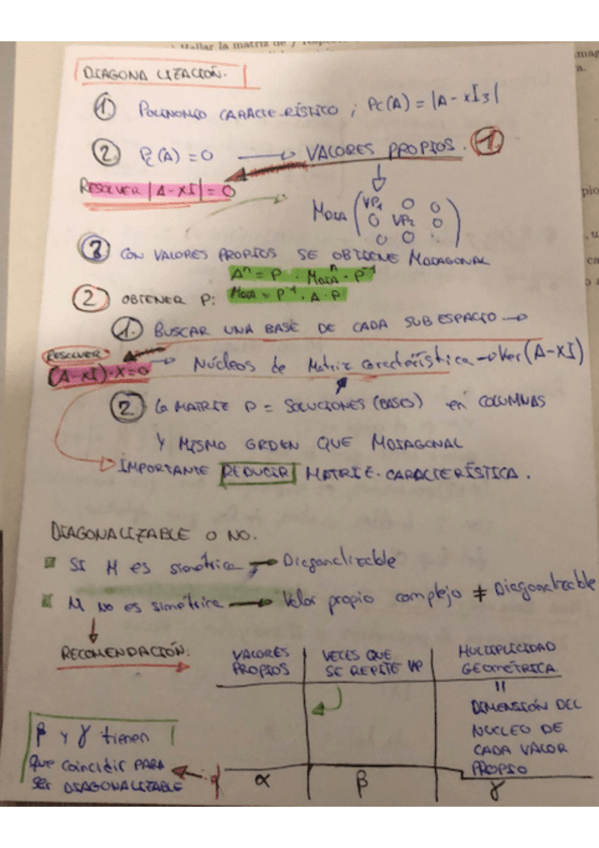 Hallar la matriz de
DIAGONALIZACIÓN.
① POLINOMIO CARACTERÍSTICO ; Pc(A) = |A - xI₃|
② Pc(A) = 0 → VALORES PROPIOS. ①
RESOLVER |A - XI| = 0
MDIA (VP₁ 0 0
0 VP₂ 0
0 0
③ CON VALORES PROPIOS SE OBTIENE MDIAGONAL
Aⁿ = P · MDIAⁿ · P⁻¹
② OBTENER P: MDIA = P⁻¹ · A · P
① BUSCAR UNA BASE DE CADA SUBESPACIO →
RESOLVER
(A - XI) · X = 0 → Núcleos de Matriz Característica → Ker(A - XI)
② la MATRIZ P = SOLUCIONES (BASES) en COLUMNAS
Y MISMO ORDEN QUE MDIAGONAL
IMPORTANTE REDUCIR MATRIZ CARACTERÍSTICA.
DIAGONALIZABLE O NO.
SI M es simétrica → Diagonalizable
M NO es simétrica → Valor propio complejo ≠ Diagonalizable
RECOMENDACIÓN:
VALORES PROPIOS
VECES QUE SE REPITE VP
MULTIPLICIDAD GEOMÉTRICA
=
DIMENSIÓN DEL
NUCLEO DE
CADA VALOR
PROPIO
β y γ tienen
que coincidir PARA
ser DIAGONALIZABLE
α β γ